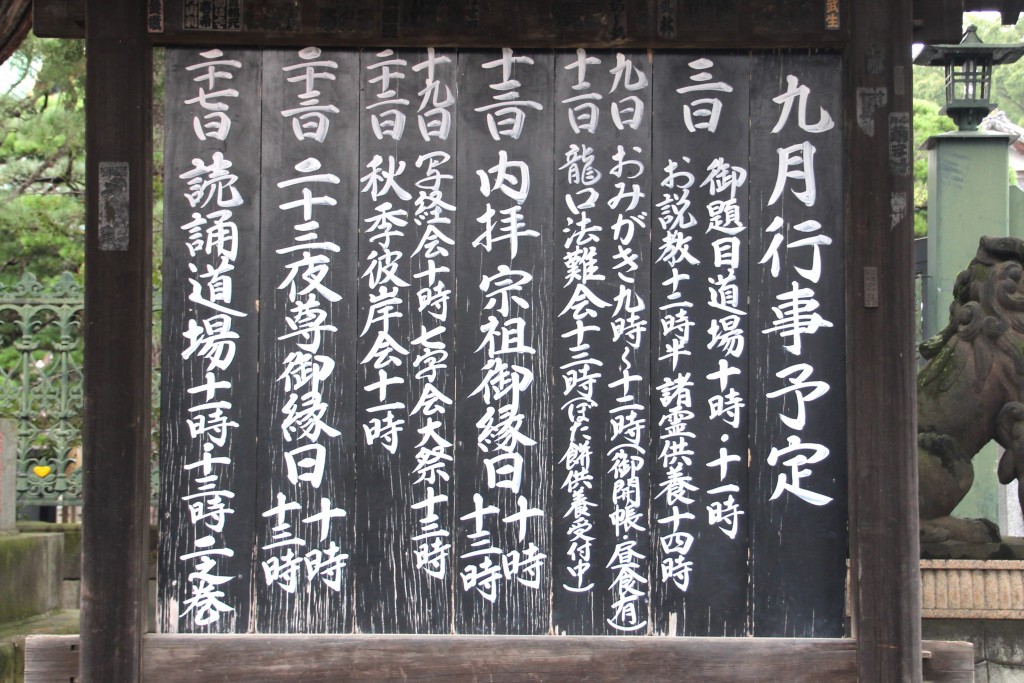 九月行事予定
三日
御題目道場十時・十一時
お説教十二時半 諸霊供養十四時
九日 おみがき九時～十二時(御開帳・昼食有)
十二日 龍口法難会十三時(ぼた餅供養受付中)
十三日 内拝 宗祖御縁日 十時
十三時
十九日 写経会十時 七字会大祭十三時
二十二日 秋季彼岸会十一時
二十三日 二十三夜尊御縁日 十時
十三時
二十七日 読誦道場十一時・十三時 二之巻